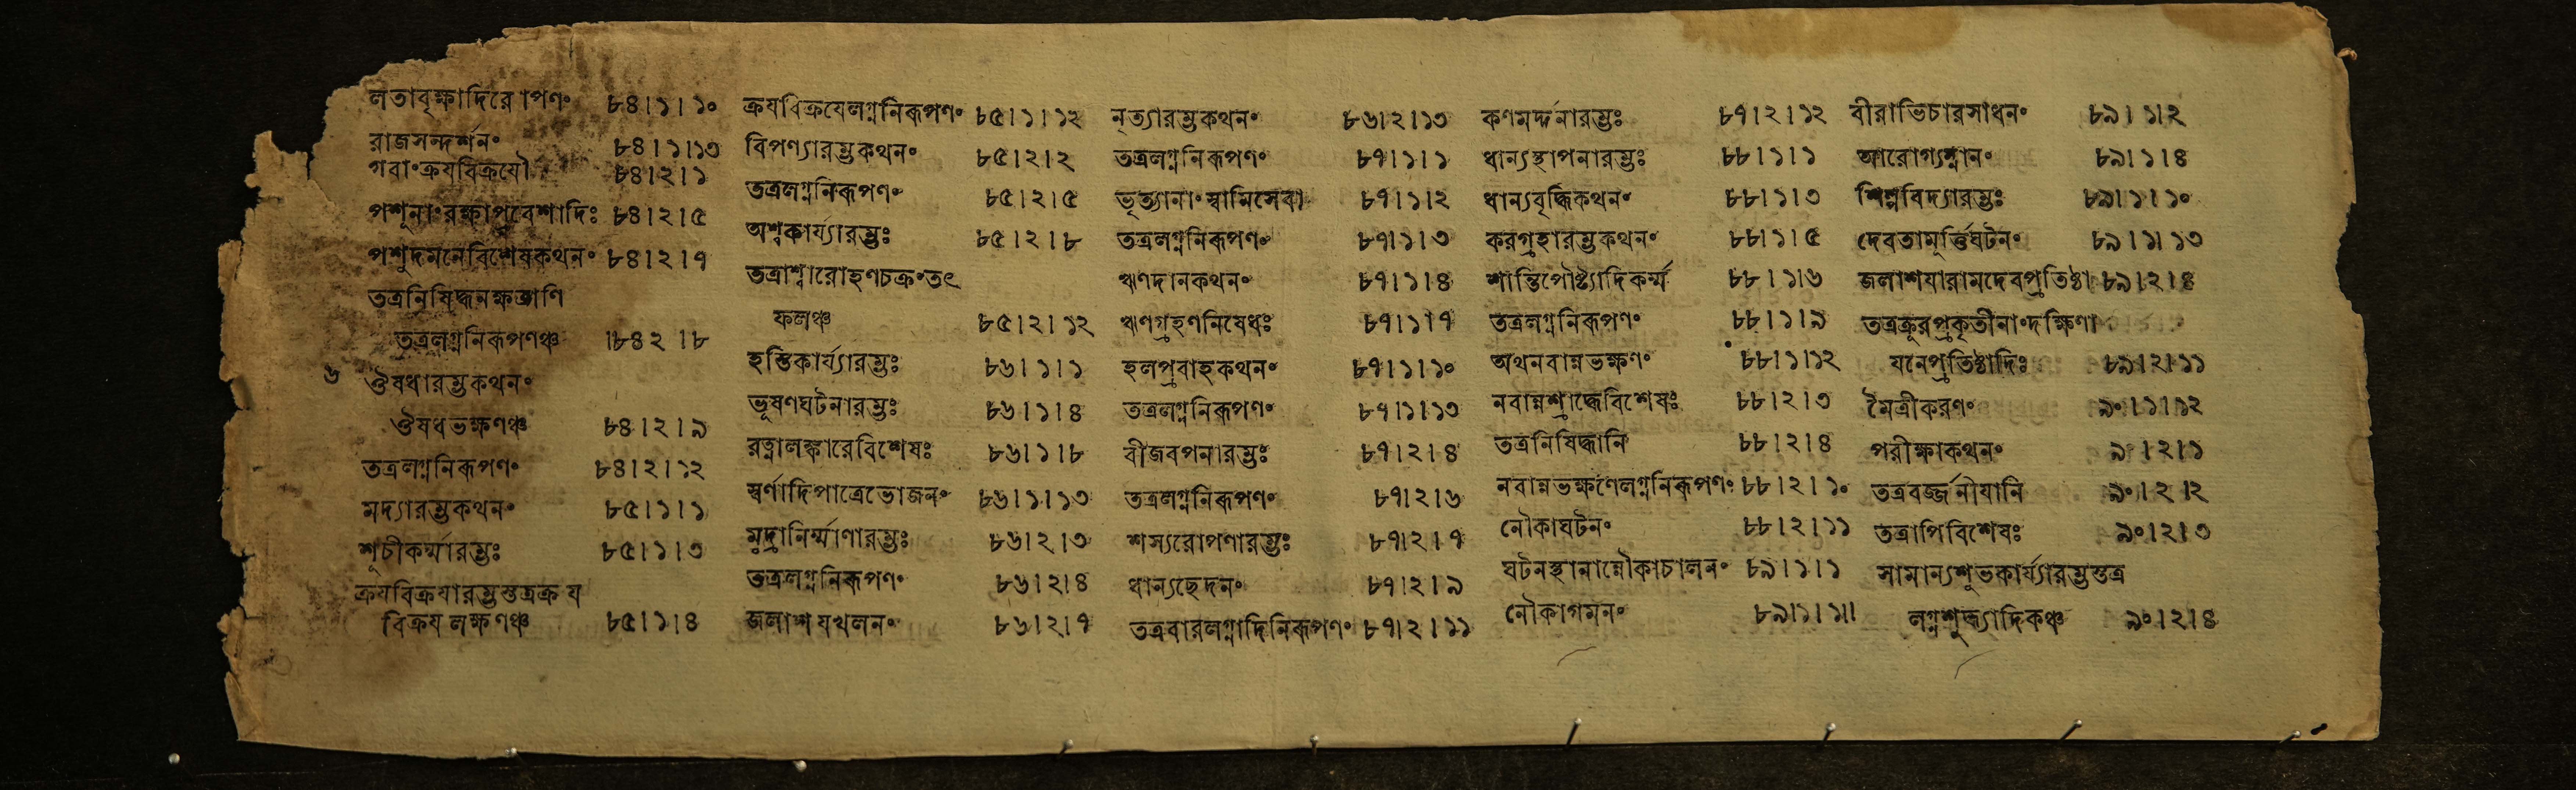 লতাবৃক্ষাদিরোপণং ৮৪।১।১০
রাজসন্দর্শনং ৮৪।১।১৩
গবাংক্রযবিক্রযৌ ৮৪।২।১
পশূনাংরক্ষাপ্রবেশাদিঃ ৮৪।২।৫
পশুদমনেবিশেষকথনং ৮৪।২।৭
তত্রনিষিদ্ধনক্ষত্রাণি
তত্রলগ্ননিরূপণঞ্চ ।৮৪২।৮
৬
ঔষধারম্ভকথনং
ঔষধভক্ষণঞ্চ ৮৪।২।৯
তত্রলগ্ননিরূপণং ৮৪।২।১২
মদ্যারম্ভকথনং ৮৫।১।১
শূচীকর্ম্মারম্ভঃ ৮৫।১।৩
ক্রযবিক্রযারম্ভস্তত্রক্রয
বিক্রযলক্ষণঞ্চ ৮৫।১।৪
ক্রযবিক্রযেলগ্ননিরূপণং ৮৫।১।১২
বিপণ্যারম্ভকথনং ৮৫।২।২
তত্রলগ্ননিরূপণং ৮৫।২।৫
অশ্বকার্য্যারম্ভঃ ৮৫।২।৮
তত্রাশ্বারোহণচক্রংতৎ
ফলঞ্চ ৮৫।২।১২
হস্তিকার্য্যারম্ভঃ ৮৬।১।১
ভূষণঘটনারম্ভঃ ৮৬।১।৪
রত্নালঙ্কারেবিশেষঃ ৮৬।১।৮
স্বর্ণাদিপাত্রেভোজনং ৮৬।১।১৩
মুদ্রানির্ম্মাণারম্ভঃ ৮৬।২।৩
তত্রলগ্ননিরূপণং ৮৬।২।৪
জলাশযখলনং ৮৬।২।৭
নৃত্যারম্ভকথনং ৮৬।২।১৩
তত্রলগ্ননিরূপণং ৮৭।১।১
ভৃত্যানাংস্বামিসেবা ৮৭।১।২
তত্রলগ্ননিরূপণং ৮৭।১।৩
ঋণদানকথনং ৮৭।১।৪
ঋণগ্রহণনিষেধঃ ৮৭।১।৭
হলপ্রবাহকথনং ৮৭।১।১০
তত্রলগ্ননিরূপণং ৮৭।১।১৩
বীজবপনারম্ভঃ ৮৭।২।৪
তত্রলগ্ননিরূপণং ৮৭।২।৬
শস্যরোপণারম্ভঃ ৮৭।২।৭
ধান্যছেদনং ৮৭।২।৯
তত্রবারলগ্নাদিনিরূপণং ৮৭।২।১১
কণমর্দ্দনারম্ভঃ ৮৭।২।১২
ধান্যস্থাপনারম্ভঃ ৮৮।১।১
ধান্যবৃদ্ধিকথনং ৮৮।১।৩
করগ্রহারম্ভকথনং ৮৮।১।৫
শান্তিপৌষ্ট্যাদিকর্ম্ম ৮৮।১।৬
তত্রলগ্ননিরূপণং ৮৮।১।৯
অথনবান্নভক্ষণং ৮৮।১।১২
নবান্নশ্রাদ্ধেবিশেষঃ ৮৮।২।৩
তত্রনিষিদ্ধানি ৮৮।২।৪
নবান্নভক্ষণেলগ্ননিরূপণং ৮৮।২।১০
নৌকাঘটনং ৮৮।২।১১
ঘটনস্থানান্নৌকাচালনং ৮৯।১।১
নৌকাগমনং ৮৯।১।১।
বীরাভিচারসাধনং ৮৯।১।২
আরোগ্যস্নানং ৮৯।১।৪
শিল্পবিদ্যারম্ভঃ ৮৯।১।১০
দেবতামূর্ত্তিঘটনং ৮৯।১।১৩
জলাশযারামদেবপ্রতিষ্ঠা ৮৯।২।৪
তত্রক্রূরপ্রকৃতীনাংদক্ষিণা
যনেপ্রতিষ্ঠাদিঃ ৮৯।২।১১
মৈত্রীকরণং ৯০।১।১২
পরীক্ষাকথনং ৯০।২।১
তত্রবর্জ্জনীযানি ৯০।২।২
তত্রাপিবিশেষঃ ৯০।২।৩
সামান্যশুভকার্য্যারম্ভস্তত্র
লগ্নশুদ্ধ্যাদিকঞ্চ ৯০।২।৪